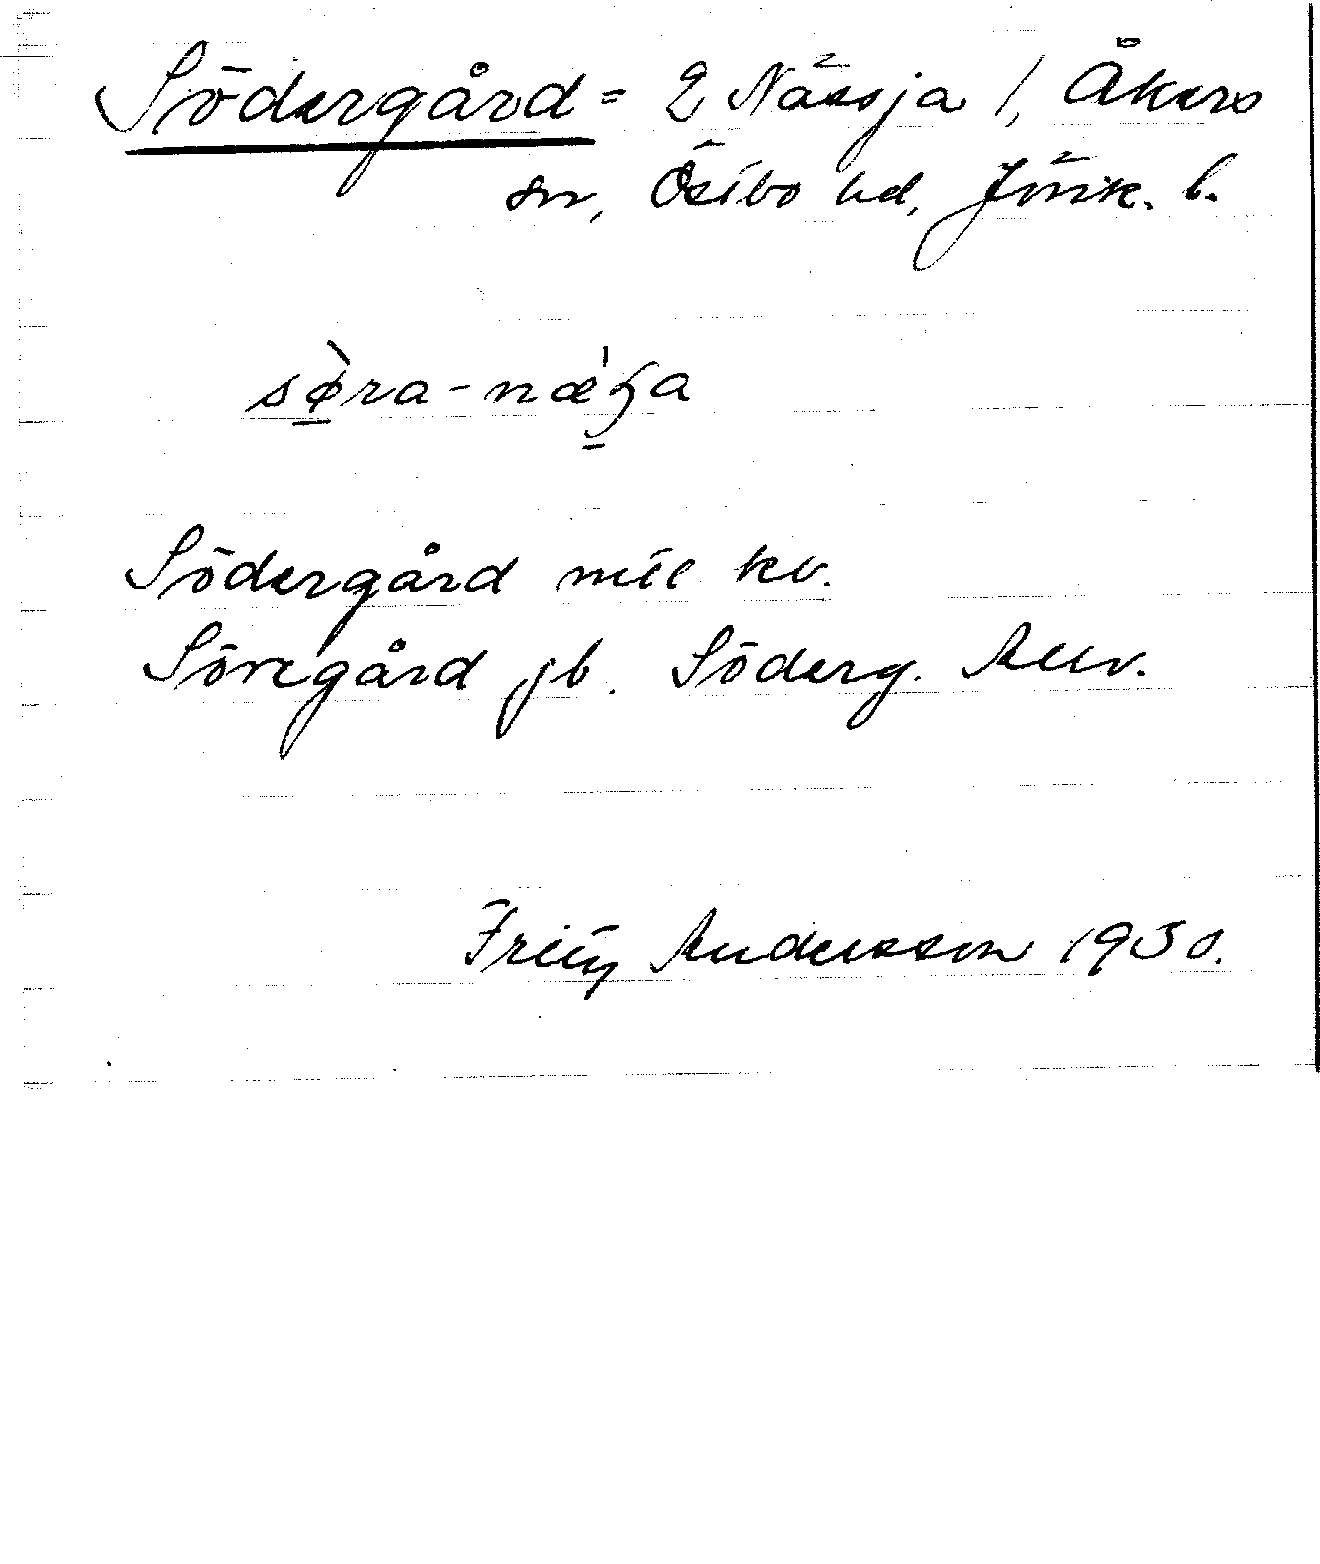 Södergård = 2 Nässja 1, Åkers
sn, Östbo hd, Jönk. l.
sø̀ra-næ̀ʒa
Södergård mtl kv.
Söregård jb. Söderg. Allv.
Fritz Andersson 1930.